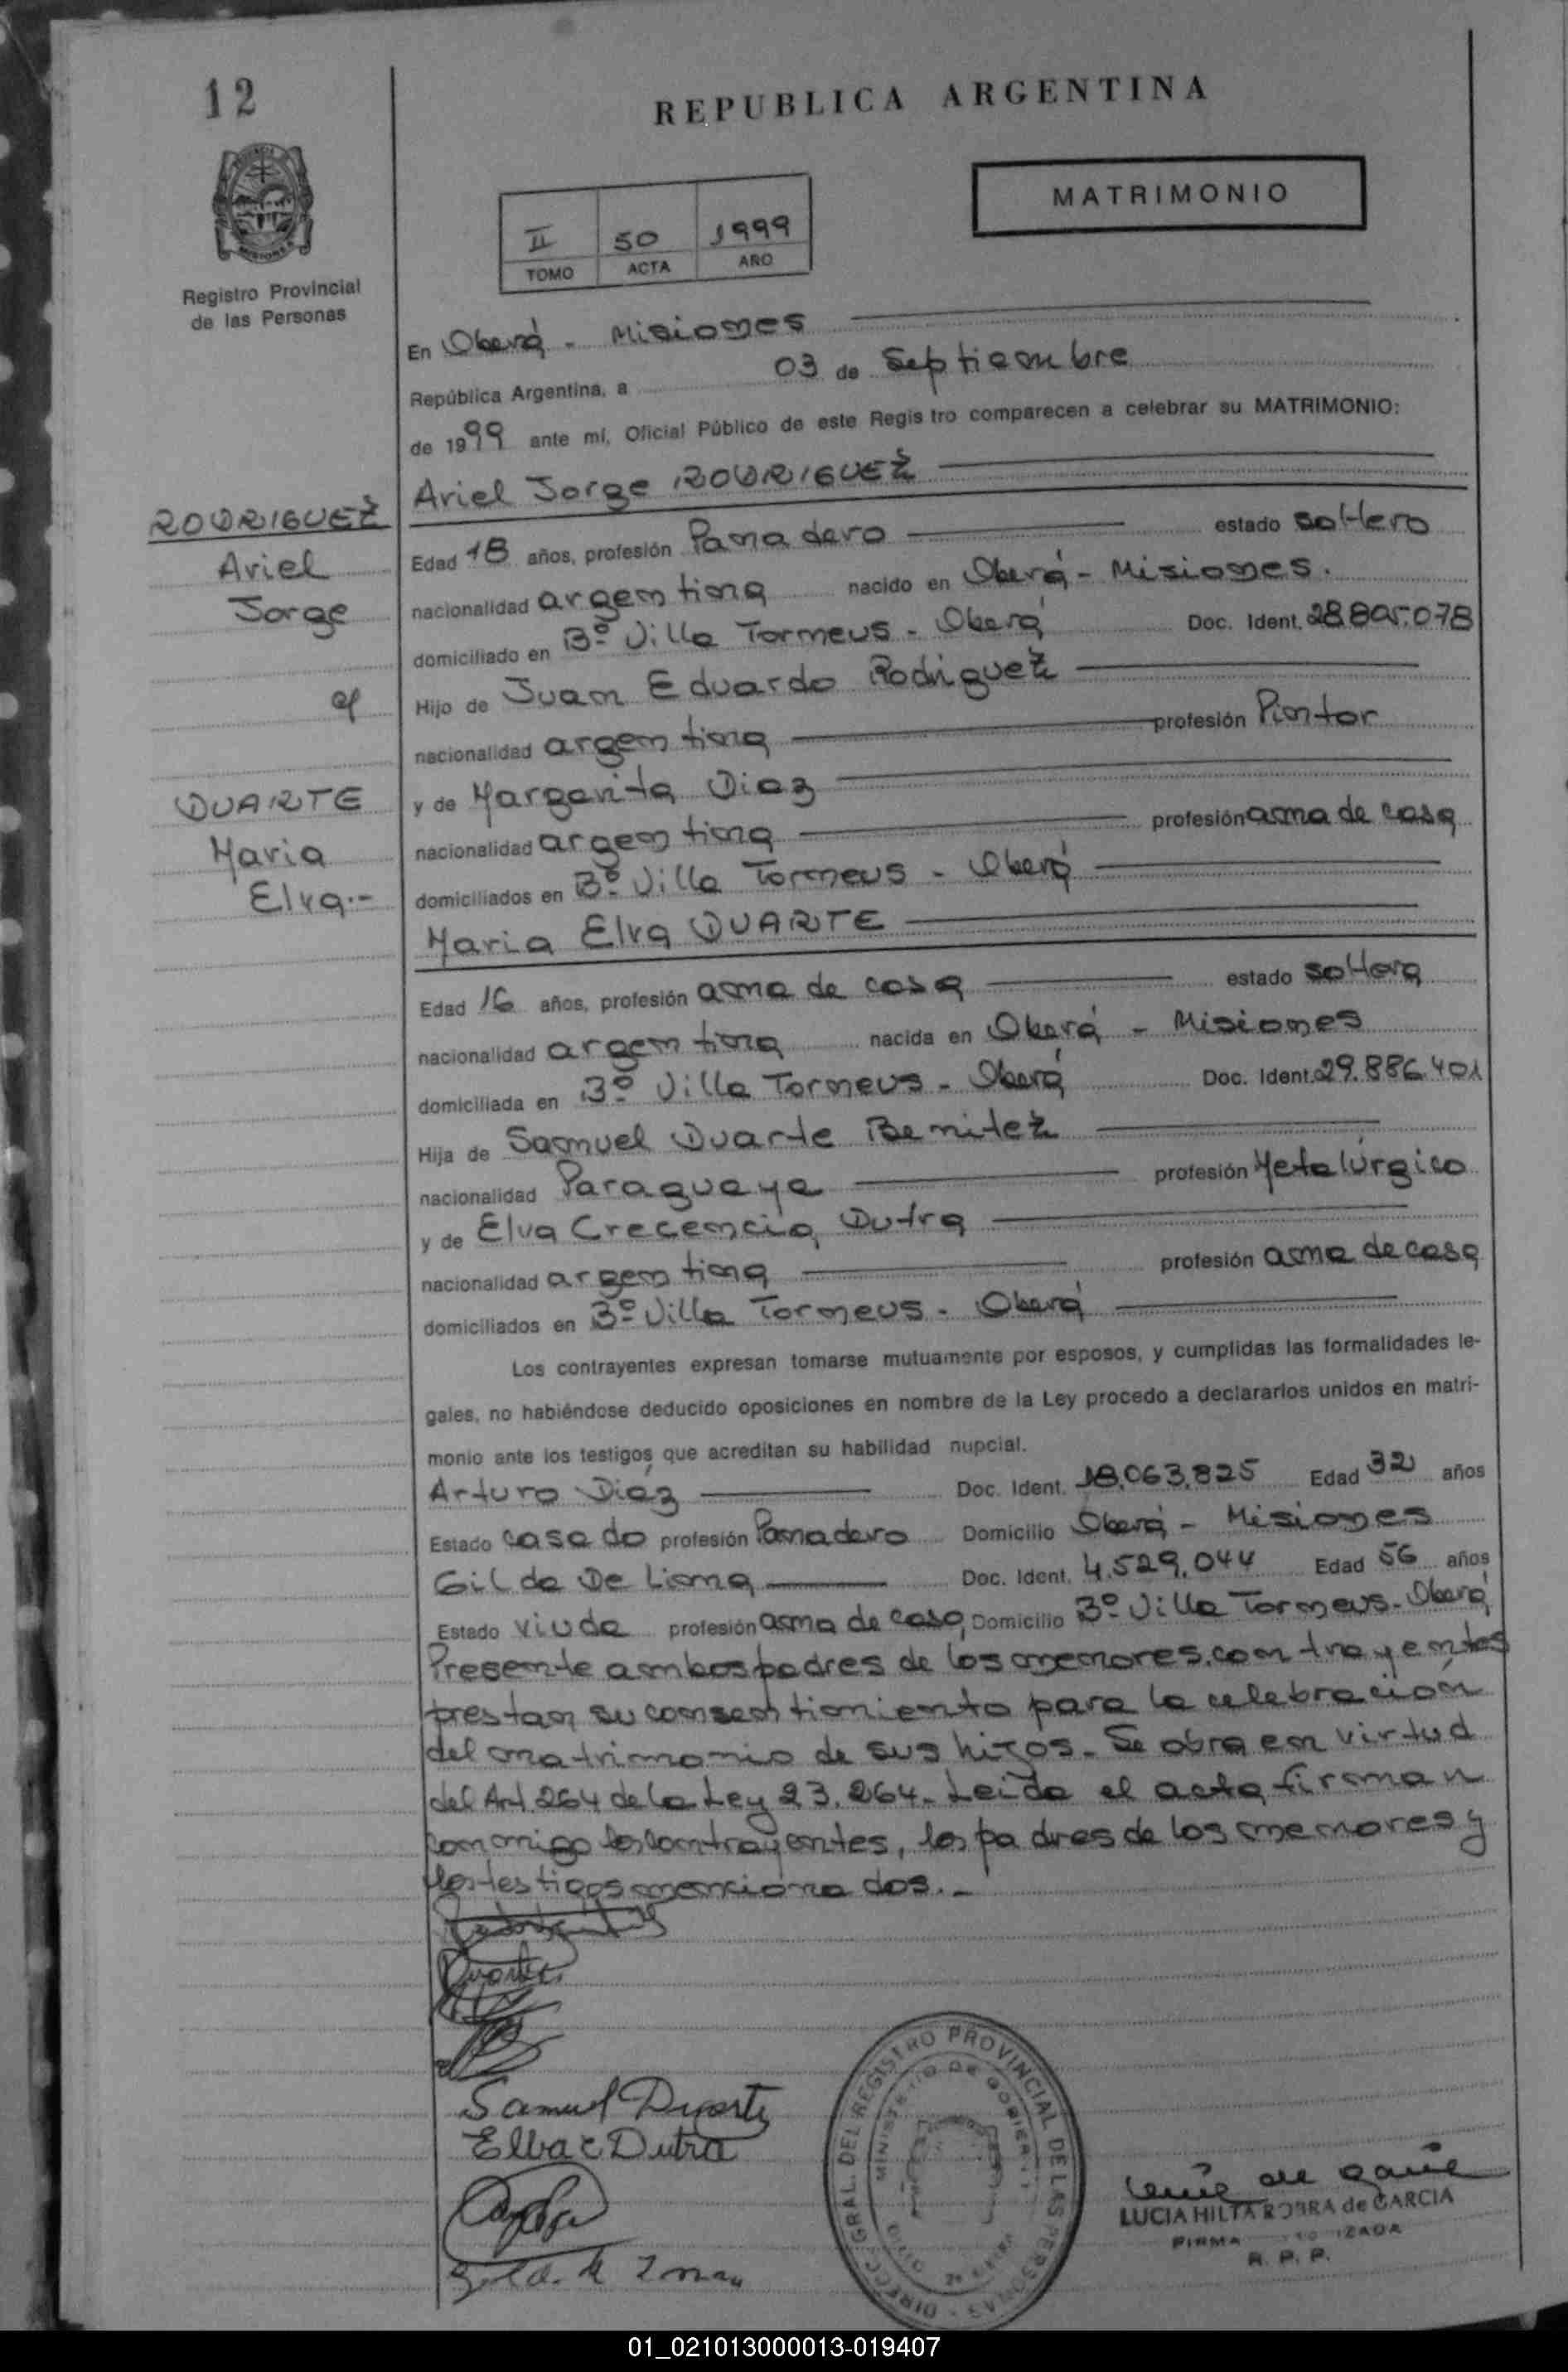 12
REPUBLICA ARGENTINA
MATRIMONIO
II 50 1999
TOMO ACTA AÑO
Registro Provincial
de las Personas
En Oberá - Misiones
República Argentina, a 03 de Septiembre
de 1999 ante mí, Oficial Público de este Registro comparecen a celebrar su MATRIMONIO:
Ariel Jorge RODRIGUEZ
RODRIGUEZ
Ariel
Jorge
c/
DUARTE
Maria
Elva.-
Edad 18 años, profesión Panadero estado soltero
nacionalidad argentina nacido en Oberá - Misiones.
domiciliado en Bº Villa Torneus - Oberá Doc. Ident. 28.805.078
Hijo de Juan Eduardo Rodriguez
nacionalidad argentina profesión Pintor
y de Margarita Diaz
nacionalidad argentina profesión ama de casa
domiciliados en Bº Villa Torneus - Oberá
Maria Elva DUARTE
Edad 16 años, profesión ama de casa estado soltera
nacionalidad argentina nacida en Oberá - Misiones
domiciliada en Bº Villa Torneus - Oberá Doc. Ident. 29.886.401
Hija de Samuel Duarte Benitez
nacionalidad Paraguaya profesión Metalúrgico
y de Elva Crecencia Dutra
nacionalidad argentina profesión ama de casa
domiciliados en Bº Villa Torneus - Oberá
Los contrayentes expresan tomarse mutuamente por esposos, y cumplidas las formalidades le-
gales, no habiéndose deducido oposiciones en nombre de la Ley procedo a declararlos unidos en matri-
monio ante los testigos que acreditan su habilidad nupcial.
Arturo Diáz Doc. Ident. 18.063.825 Edad 32 años
Estado casado profesión Panadero Domicilio Oberá - Misiones
Gilda De Lima Doc. Ident. 4.529.044 Edad 56 años
Estado viuda profesión ama de casa Domicilio Bº Villa Torneus - Oberá
Presente ambos padres de los menores contrayentes
prestan su consentimiento para la celebración
del matrimonio de sus hijos. Se obra en virtud
del Art 264 de la Ley 23.264. Leida el acta firman
conmigo los contrayentes, los padres de los menores y
los testigos mencionados.-
Duarte
Samuel Duarte
Elba C Dutra
DIRECC. GRAL. DEL REGISTRO PROVINCIAL DE LAS PERSONAS
MINISTERIO DE GOBIERNO
LUCIA HILTA ROBRA de GARCIA
FIRMA
R. P. P.
01_021013000013-019407